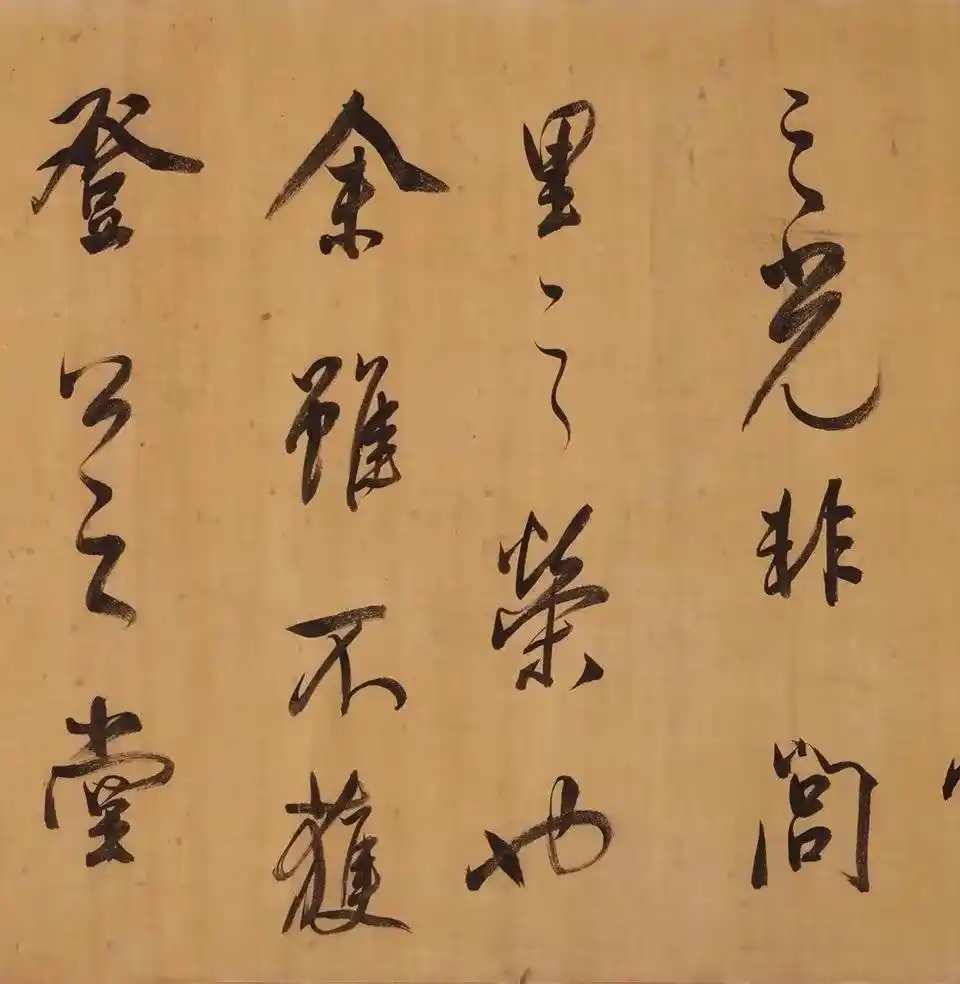 之光非閭
里之榮也
余雖不獲
登公之堂